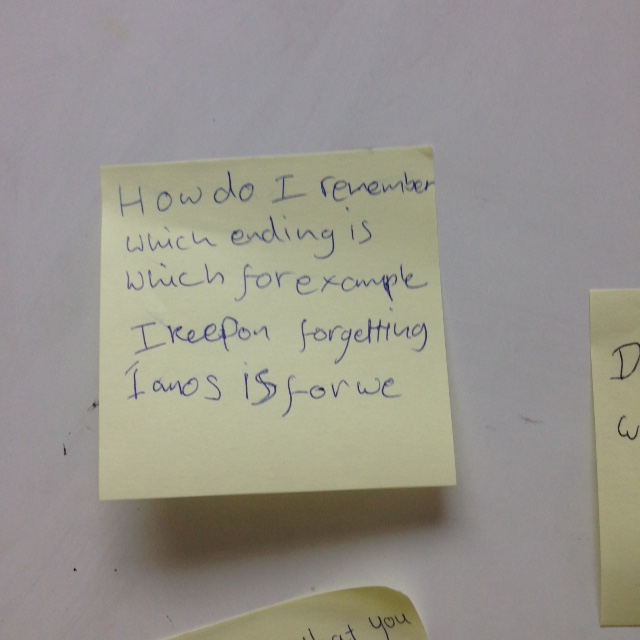 How do I remember
which ending is
which for example
I keep on forgetting
íamos is for we
D
w
what you